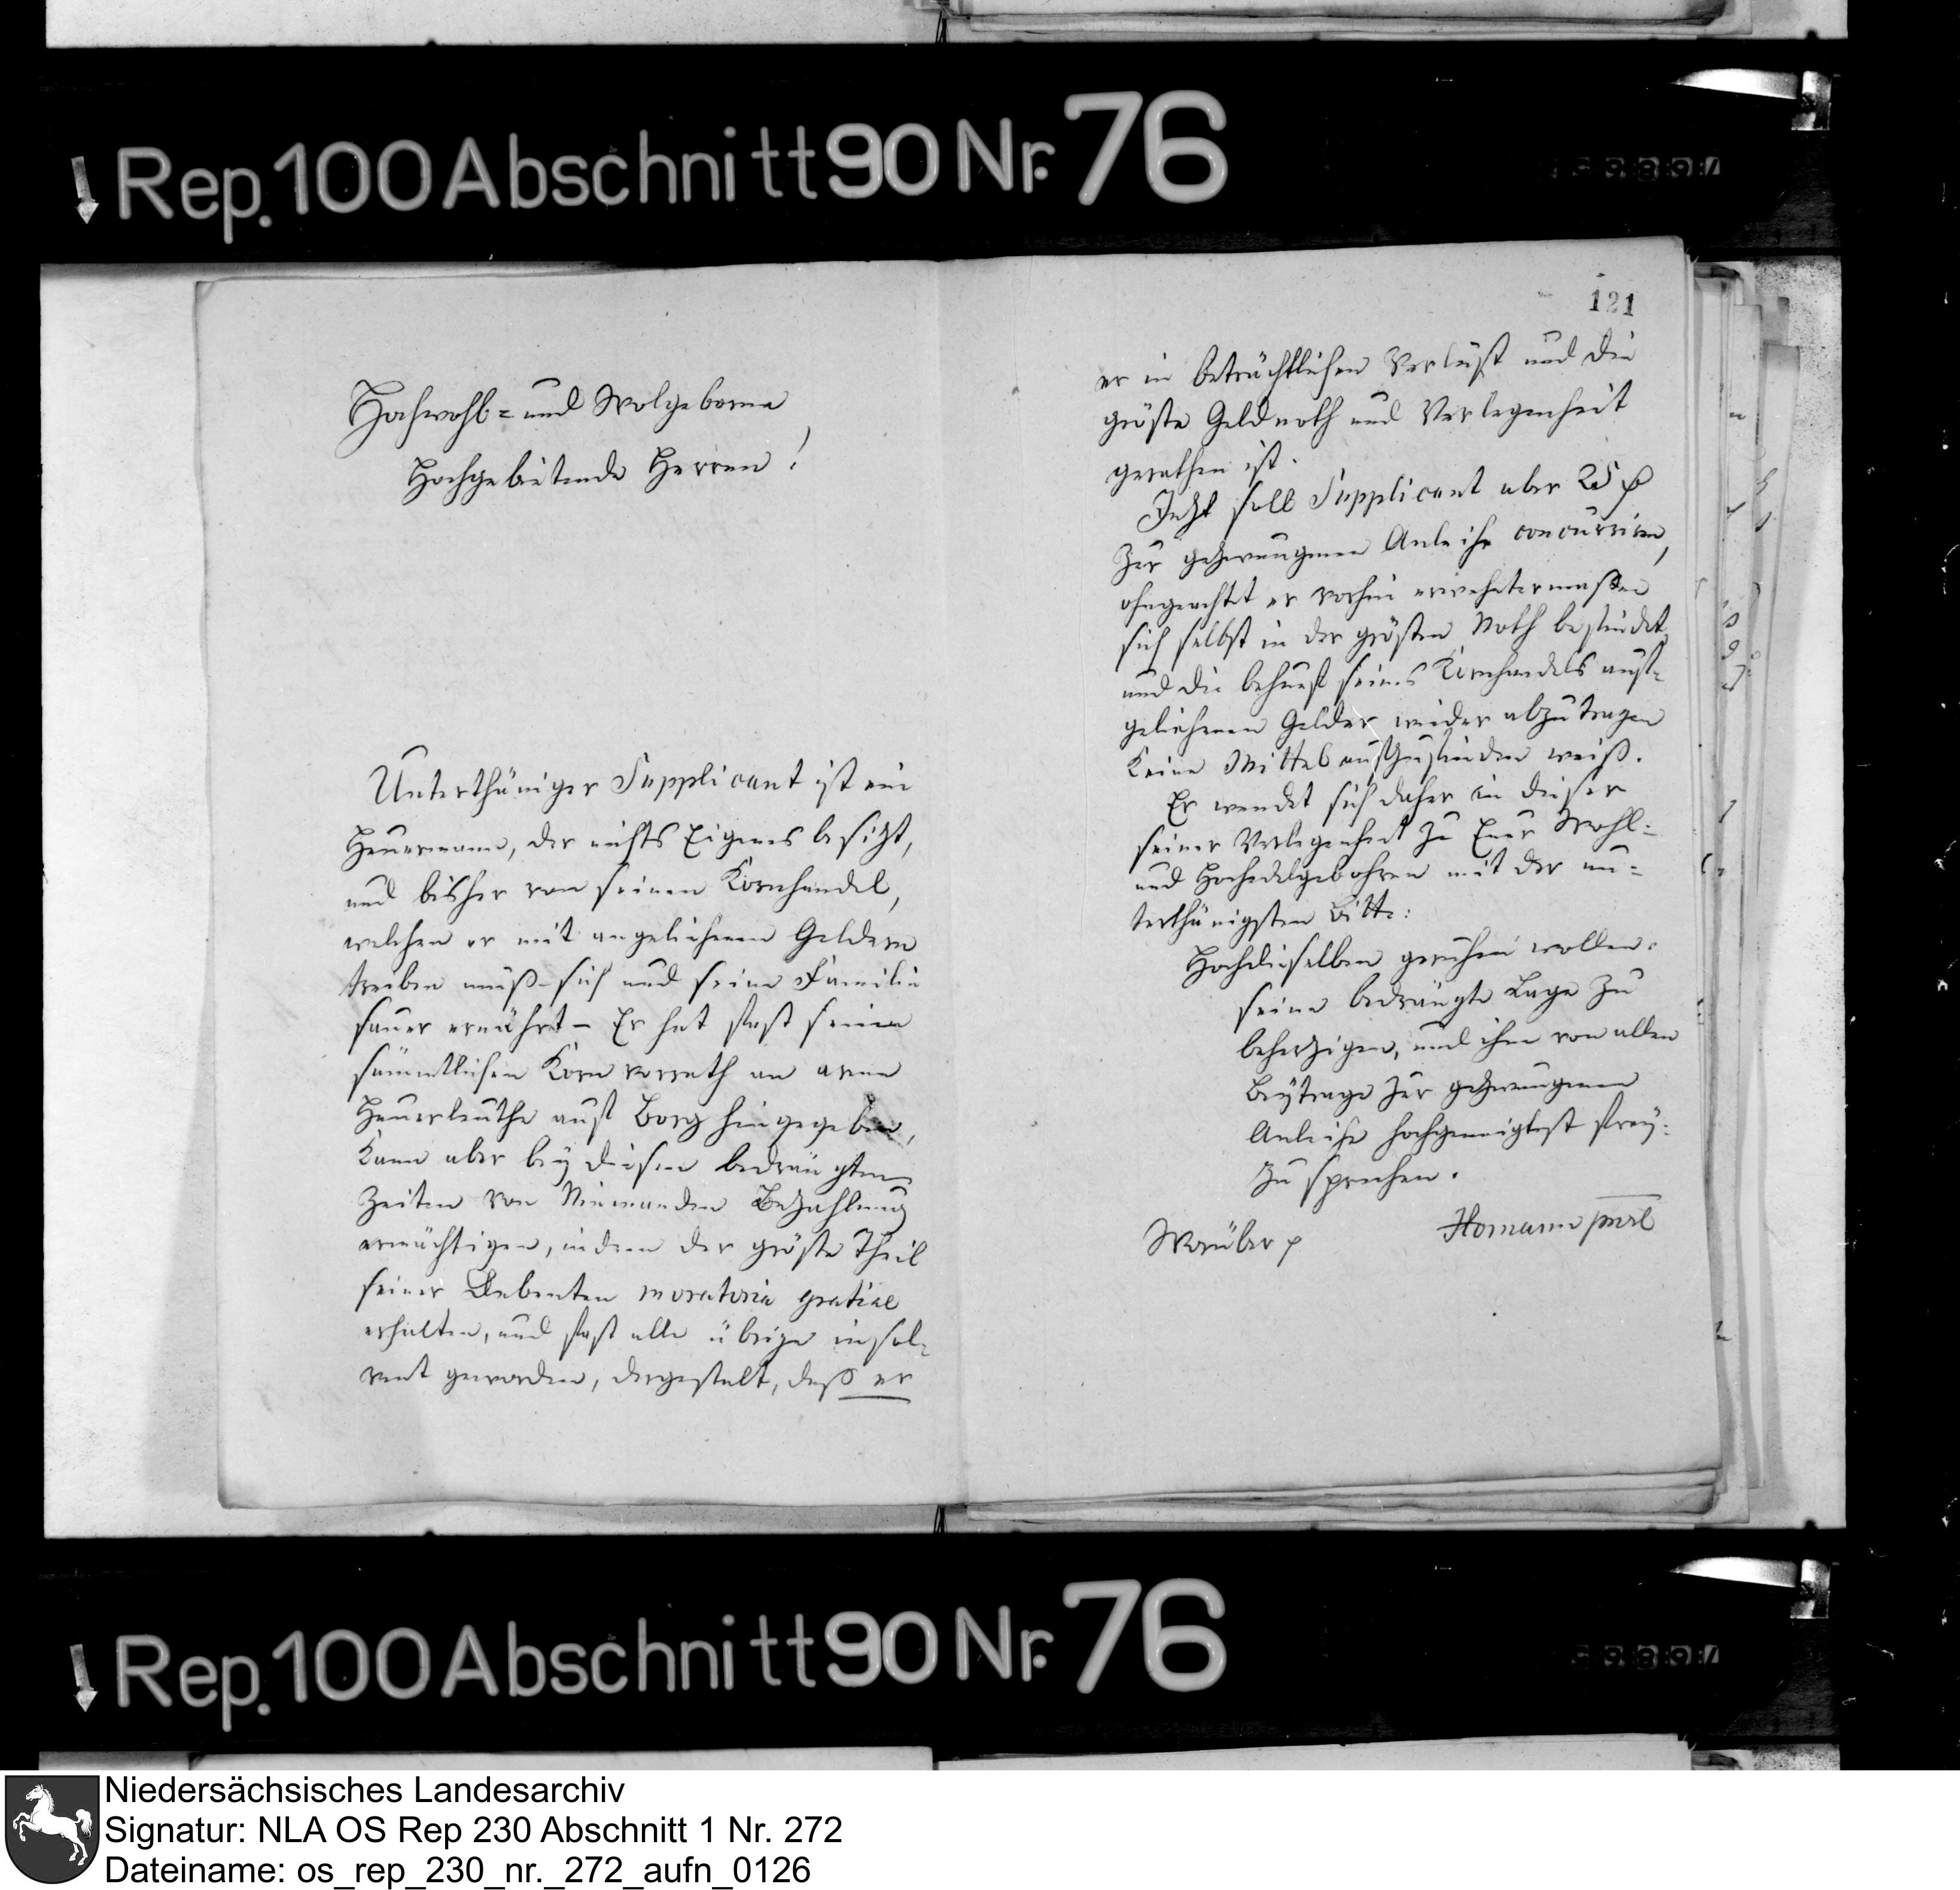 Rep. 100 Abschnitt 90 Nr. 76
Hochwohl- und Wolgeborne
Hochgebietende Herren!
Unterthäniger Supplicant ist ein
Heuermann, der nichts Eigenes besitzt,
und bisher von seinen Kornhandel,
welchen er mit angeliehenen Geldern
treiben muß sich und seine Familie
sauer ernährt – Er hat fast seinen
sämmtlichen Korn vorrath an arme
Heuerleuthe auf Borg hingegeben,
Kann aber bey diesen bedrängten
Zeiten von Niemanden Bezahlung
ermächtigen, indem der gröste Theil
seiner Debenten moratoria gratiae
erhalten, und fast alle übrige insol-
vent geworden, dergestalt, daß er
121
er in beträchtlichen Verlust und die
gröste Geldnoth und Verlegenheit
gerathen ist.
Jetzt soll Supplicant aber 25
zur gezwungenen Anleihe concurriren,
ohngeachtet er vorhin erwehntermaßen
sich selbst in der grösten Noth befindet,
und die behuef seines Kornhandels auf-
geliehenen Gelder wieder abzutragen
Keine Mittel auszufinden weiß.
Er wendet sich daher in dieser
seiner Verlegenheit zu Euer Wohl-
und Hochedelgebohren mit der un-
terthänigsten Bitte:
Hochdieselben geruhen wollen:
seine bedrängte Lage zu
beherzigen, und ihn von allen
Beytrage zur gezwungenen
Anleihe hochgeneigtest frey-
zu sprechen.
Worüber
Homann
Rep. 100 Abschnitt 90 Nr. 76
Niedersächsisches Landesarchiv
Signatur: NLA OS Rep 230 Abschnitt 1 Nr. 272
Dateiname: os_rep_230_nr._272_aufn_0126